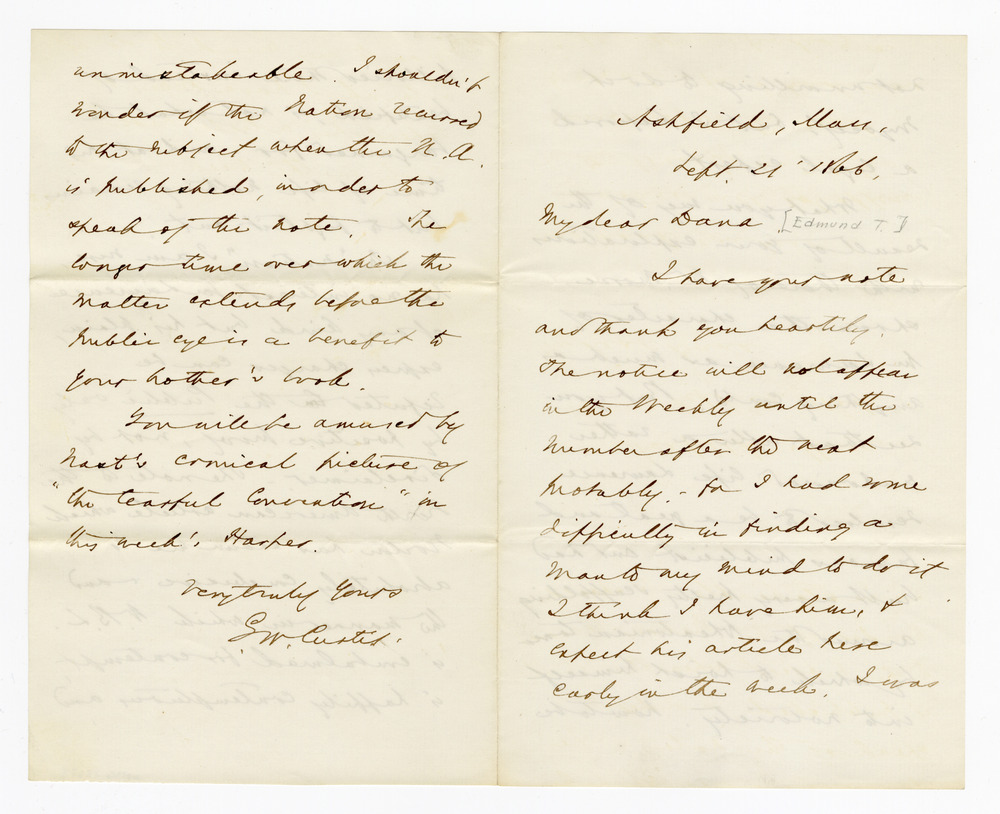 Ashfield, Mass,
Sept. 21' 1866,
My dear Dana [Edmund T.]
I have your note
and thank you heartily.
The notice will not appear
in the Weekly until the
number after the next
probably. - for I had some
difficulty in finding a
man to my mind to do it
I think I have him, &
expect his article here
early in the week. I was
unmistakeable. I shouldn't
wonder if the Nation recurred
to the subject when the N. A.
is published, in order to
speak of the note. The
longer time over which the
matter extends before the
public eye is a benefit to
your brother's book.
You will be amused by
Nast's comical picture of
"the tearful Convention" in
this week's Harper.
Very truly Yours
G. W. Curtis.